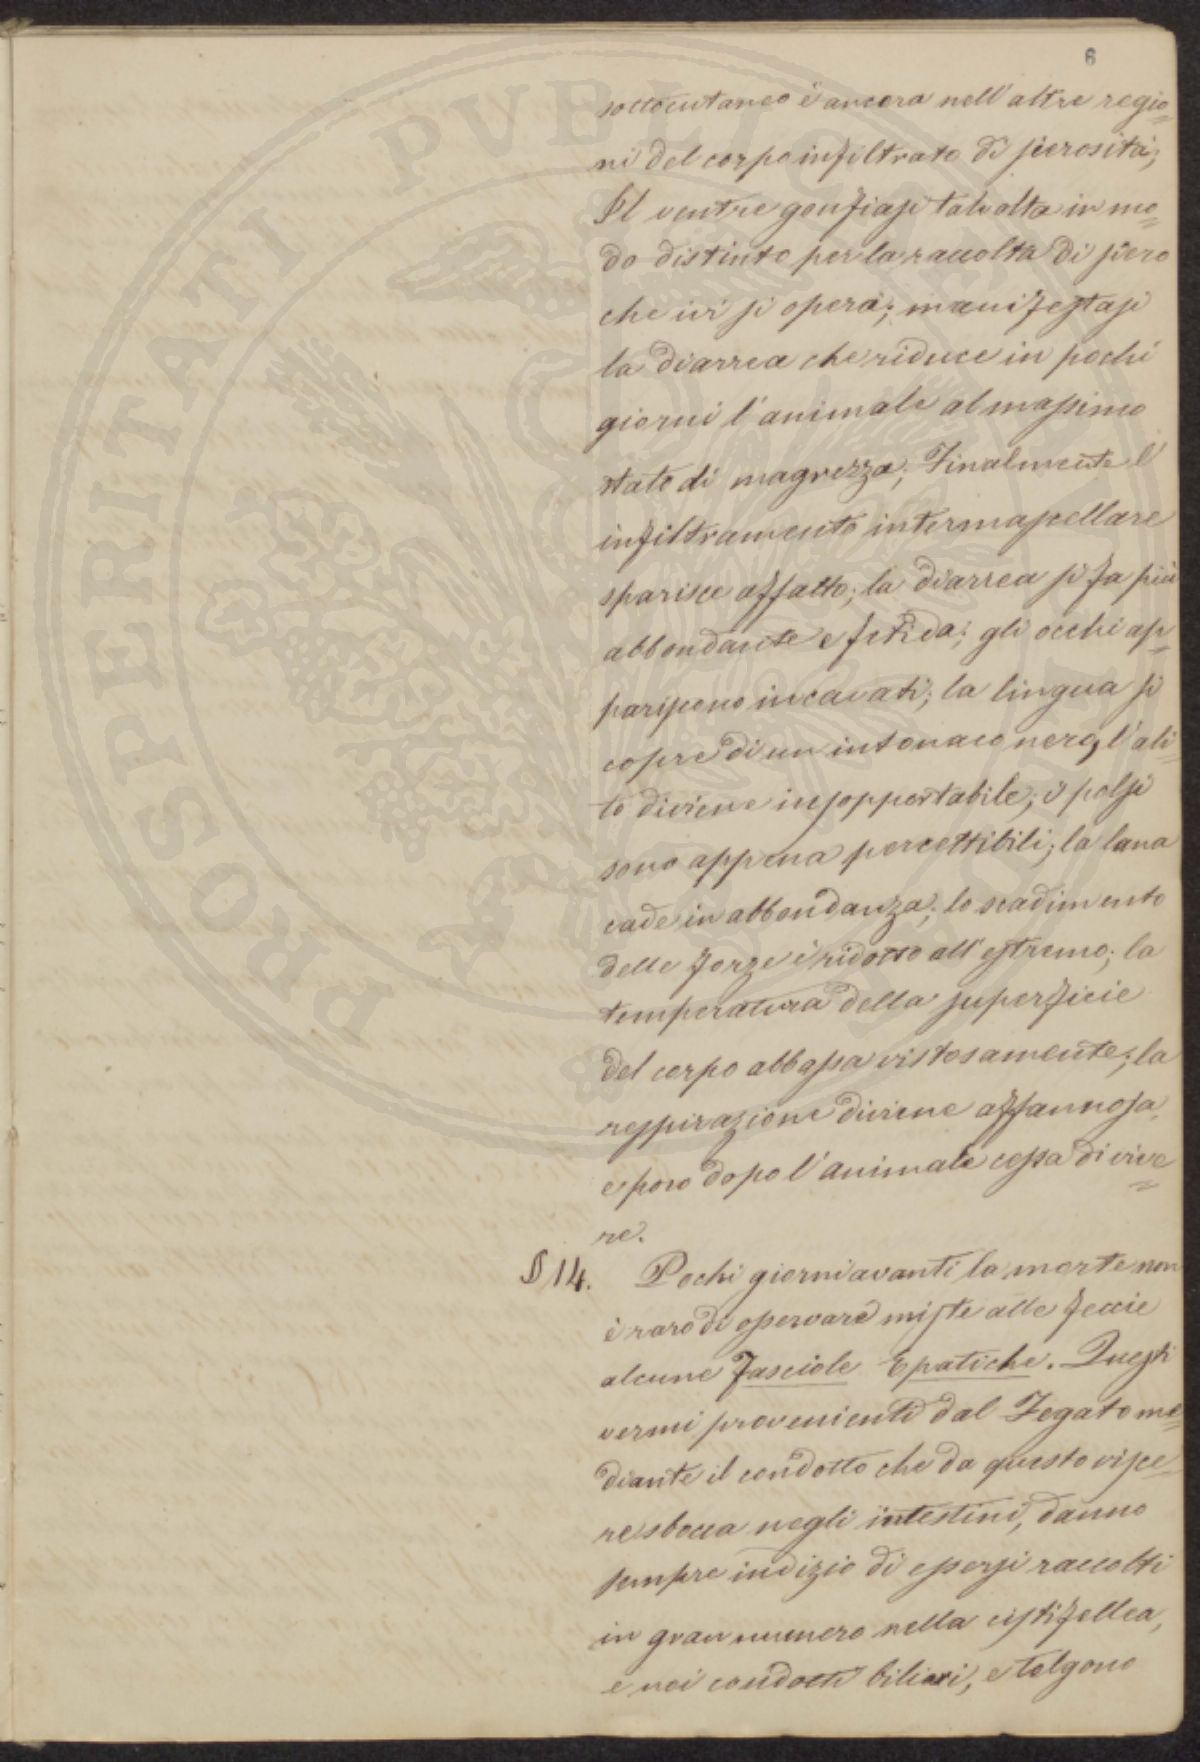 6
sottocutaneo è ancora nell'altre regio=
ni del corpo infiltrato di sierosità;
Il ventre gonfiasi talvolta in mo=
do distinto per la raccolta di siero
che ivi si opera; manifestasi
la diarrea che riduce in pochi
giorni l'animale al massimo
stato di magrezza; Finalmente l'
infiltramento intermascellare
sparisce affatto; la diarrea si fa più
abbondante e fetida; gli occhi ap=
pariscono incavati; la lingua si
copre di un intonaco nero, l'ali=
to diviene insopportabile; i polsi
sono appena percettibili; la lana
cade in abbondanza; lo scadimento
delle forze è ridotto all'estremo; la
temperatura della superficie
del corpo abbassa vistosamente; la
respirazione diviene affannosa,
e poco dopo l'animale cessa di vive=
re.
§ 14. Pochi giorni avanti la morte non
è raro di osservare miste alle feccie
alcune Fasciole Epatiche. Questi
vermi provenienti dal Fegato me=
diante il condotto che da questo visce=
re sbocca negli intestini, danno
sempre indizio di essersi raccolti
in gran numero nella cistifellea,
e nei condotti biliari, e tolgono
PROSPERITATI PVBLICAE